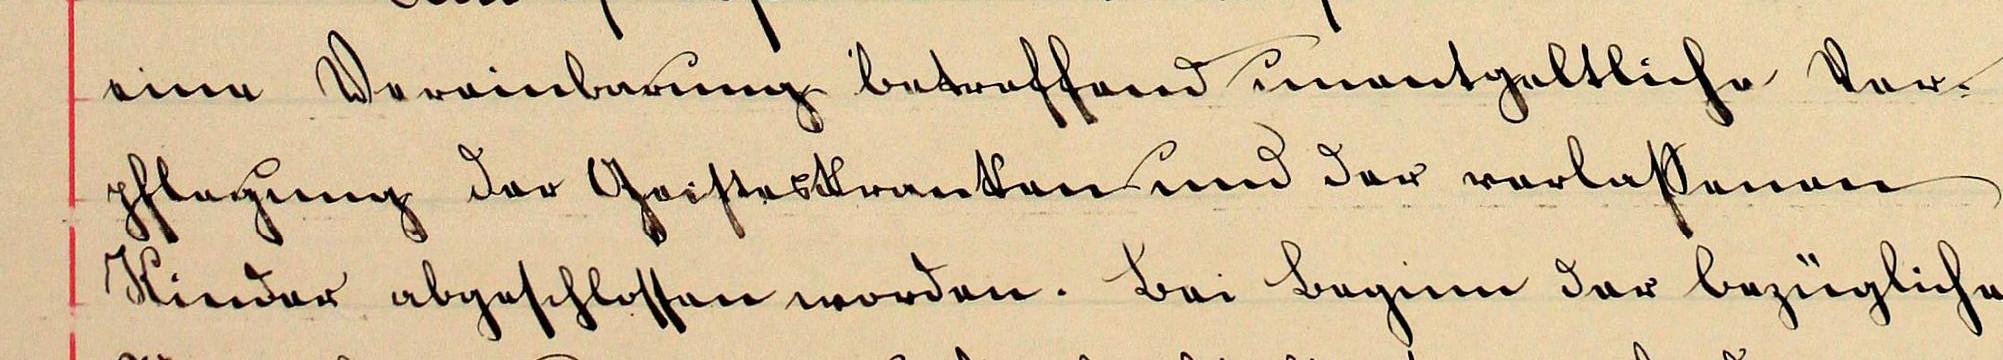 eine Vereinbarung betreffend unentgeltliche Ver-
pflegung der Geisteskranken und der verlassenen
Kinder abgeschlossen worden. Bei Beginn der bezügliche